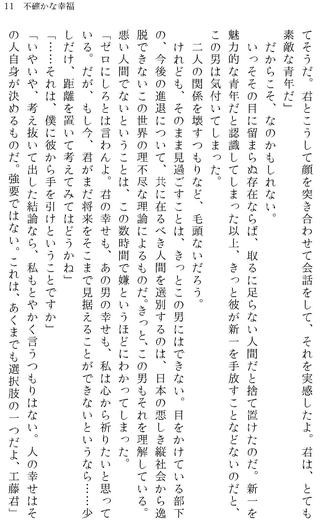 11　不確かな幸福
てそうだ。君とこうして顔を突き合わせて会話をして、それを実感したよ。君は、とても
素敵な青年だ」
だからこそ、なのかもしれない。
いっそその目に留まらぬ存在ならば、取るに足らない人間だと捨て置けたのだ。新一を
魅力的な青年だと認識してしまった以上、きっと彼が新一を手放すことなどないのだと、
この男は気付いてしまった。
二人の関係を壊すつもりなど、毛頭ないだろう。
けれども、そのまま見過ごすことは、きっとこの男にはできない。目をかけている部下
の、今後の進退について、共に在るべき人間を選別するのは、日本の悪しき縦社会から逸
脱できないこの世界の理不尽な理論によるものだ。きっと、この男もそれを理解している。
悪い人間でないということは、この数時間で嫌というほどにわかってしまった。
「ゼロにしろとは言わんよ。君の幸せも、あの男の幸せも、私は心から祈りたいと思って
いる。だが、もし今、君がまだ将来をそこまで見据えることができないというなら……少
しだけ、距離を置いて考えてみてはどうかね」
「……それは、僕に彼から手を引けということですか」
「いやいや、考え抜いて出した結論なら、私もとやかく言うつもりはない。人の幸せはそ
の人自身が決めるものだ。強要ではない。これは、あくまでも選択肢の一つだよ、工藤君」